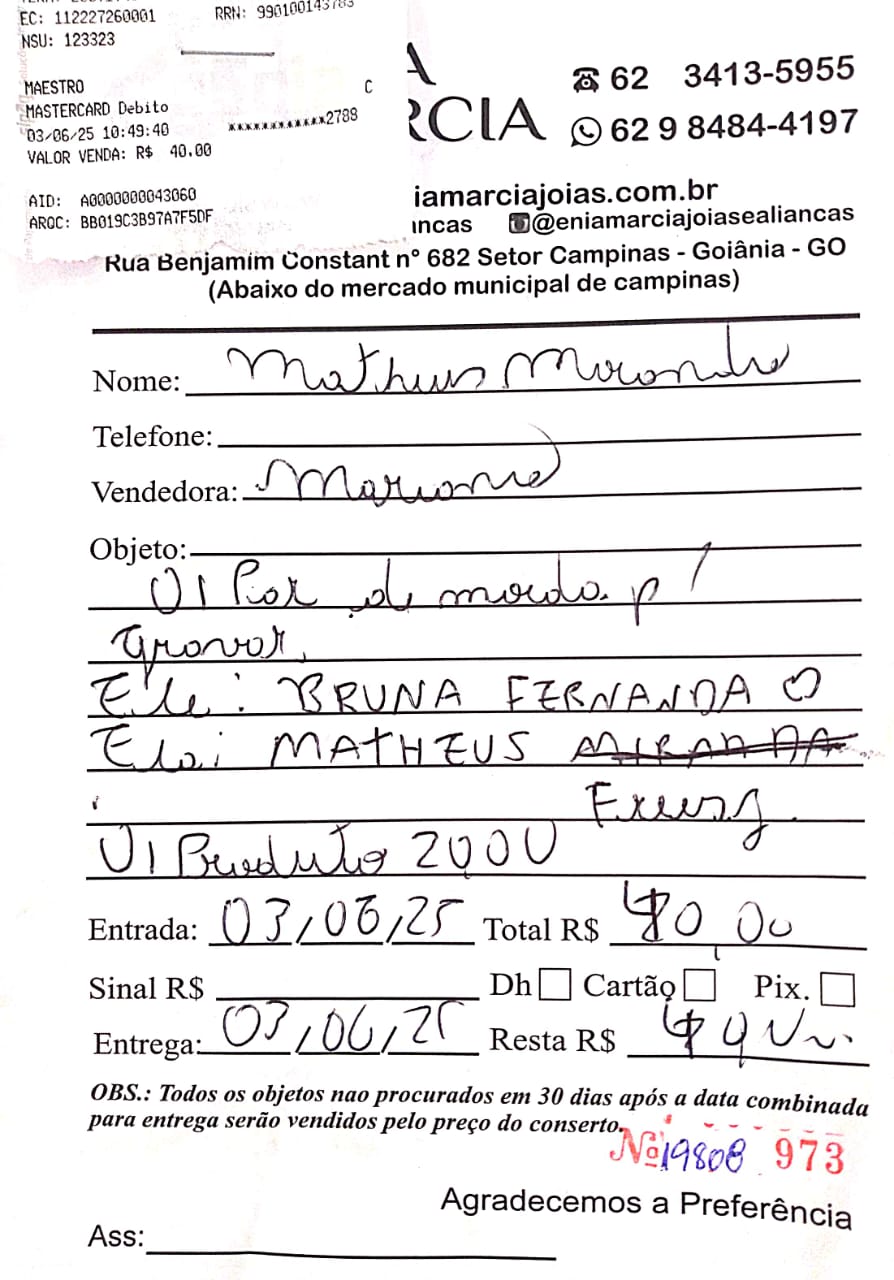 EC: 112227260001 RRN: 990100143783
NSU: 123323
MAESTRO C
MASTERCARD Debito
03/06/25 10:49:40 ************2788
VALOR VENDA: R$ 40.00
AID: A0000000043060
ARQC: BB019C3B97A7F5DF
A
RCIA
62 3413-5955
62 9 8484-4197
iamarciajoias.com.br
incas @eniamarciajoiasealiancas
Rua Benjamim Constant nº 682 Setor Campinas - Goiânia - GO
(Abaixo do mercado municipal de campinas)
Nome: Matheus Miranda
Telefone:
Vendedora: Mariana
Objeto:
01 Par de moeda p/
gravar
Ele: BRUNA FERNANDA ♡
Ela: MATHEUS MIRANDA
01 Produto 20,00
Entrada: 03/06/25 Total R$ 40 00
Sinal R$ Dh Cartão Pix.
Entrega: 03/06/25 Resta R$
OBS.: Todos os objetos nao procurados em 30 dias após a data combinada
para entrega serão vendidos pelo preço do conserto.
Nº 19808 973
Agradecemos a Preferência
Ass: